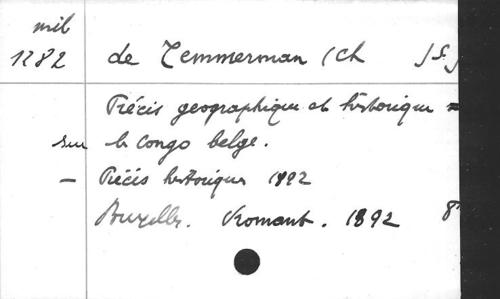 mil
1282 de Temmerman (Ch J S.)
Précis géographique et historique
sur le Congo belge.
— Précis historiques 1892
Bruxelles. Vromant. 1892 8°